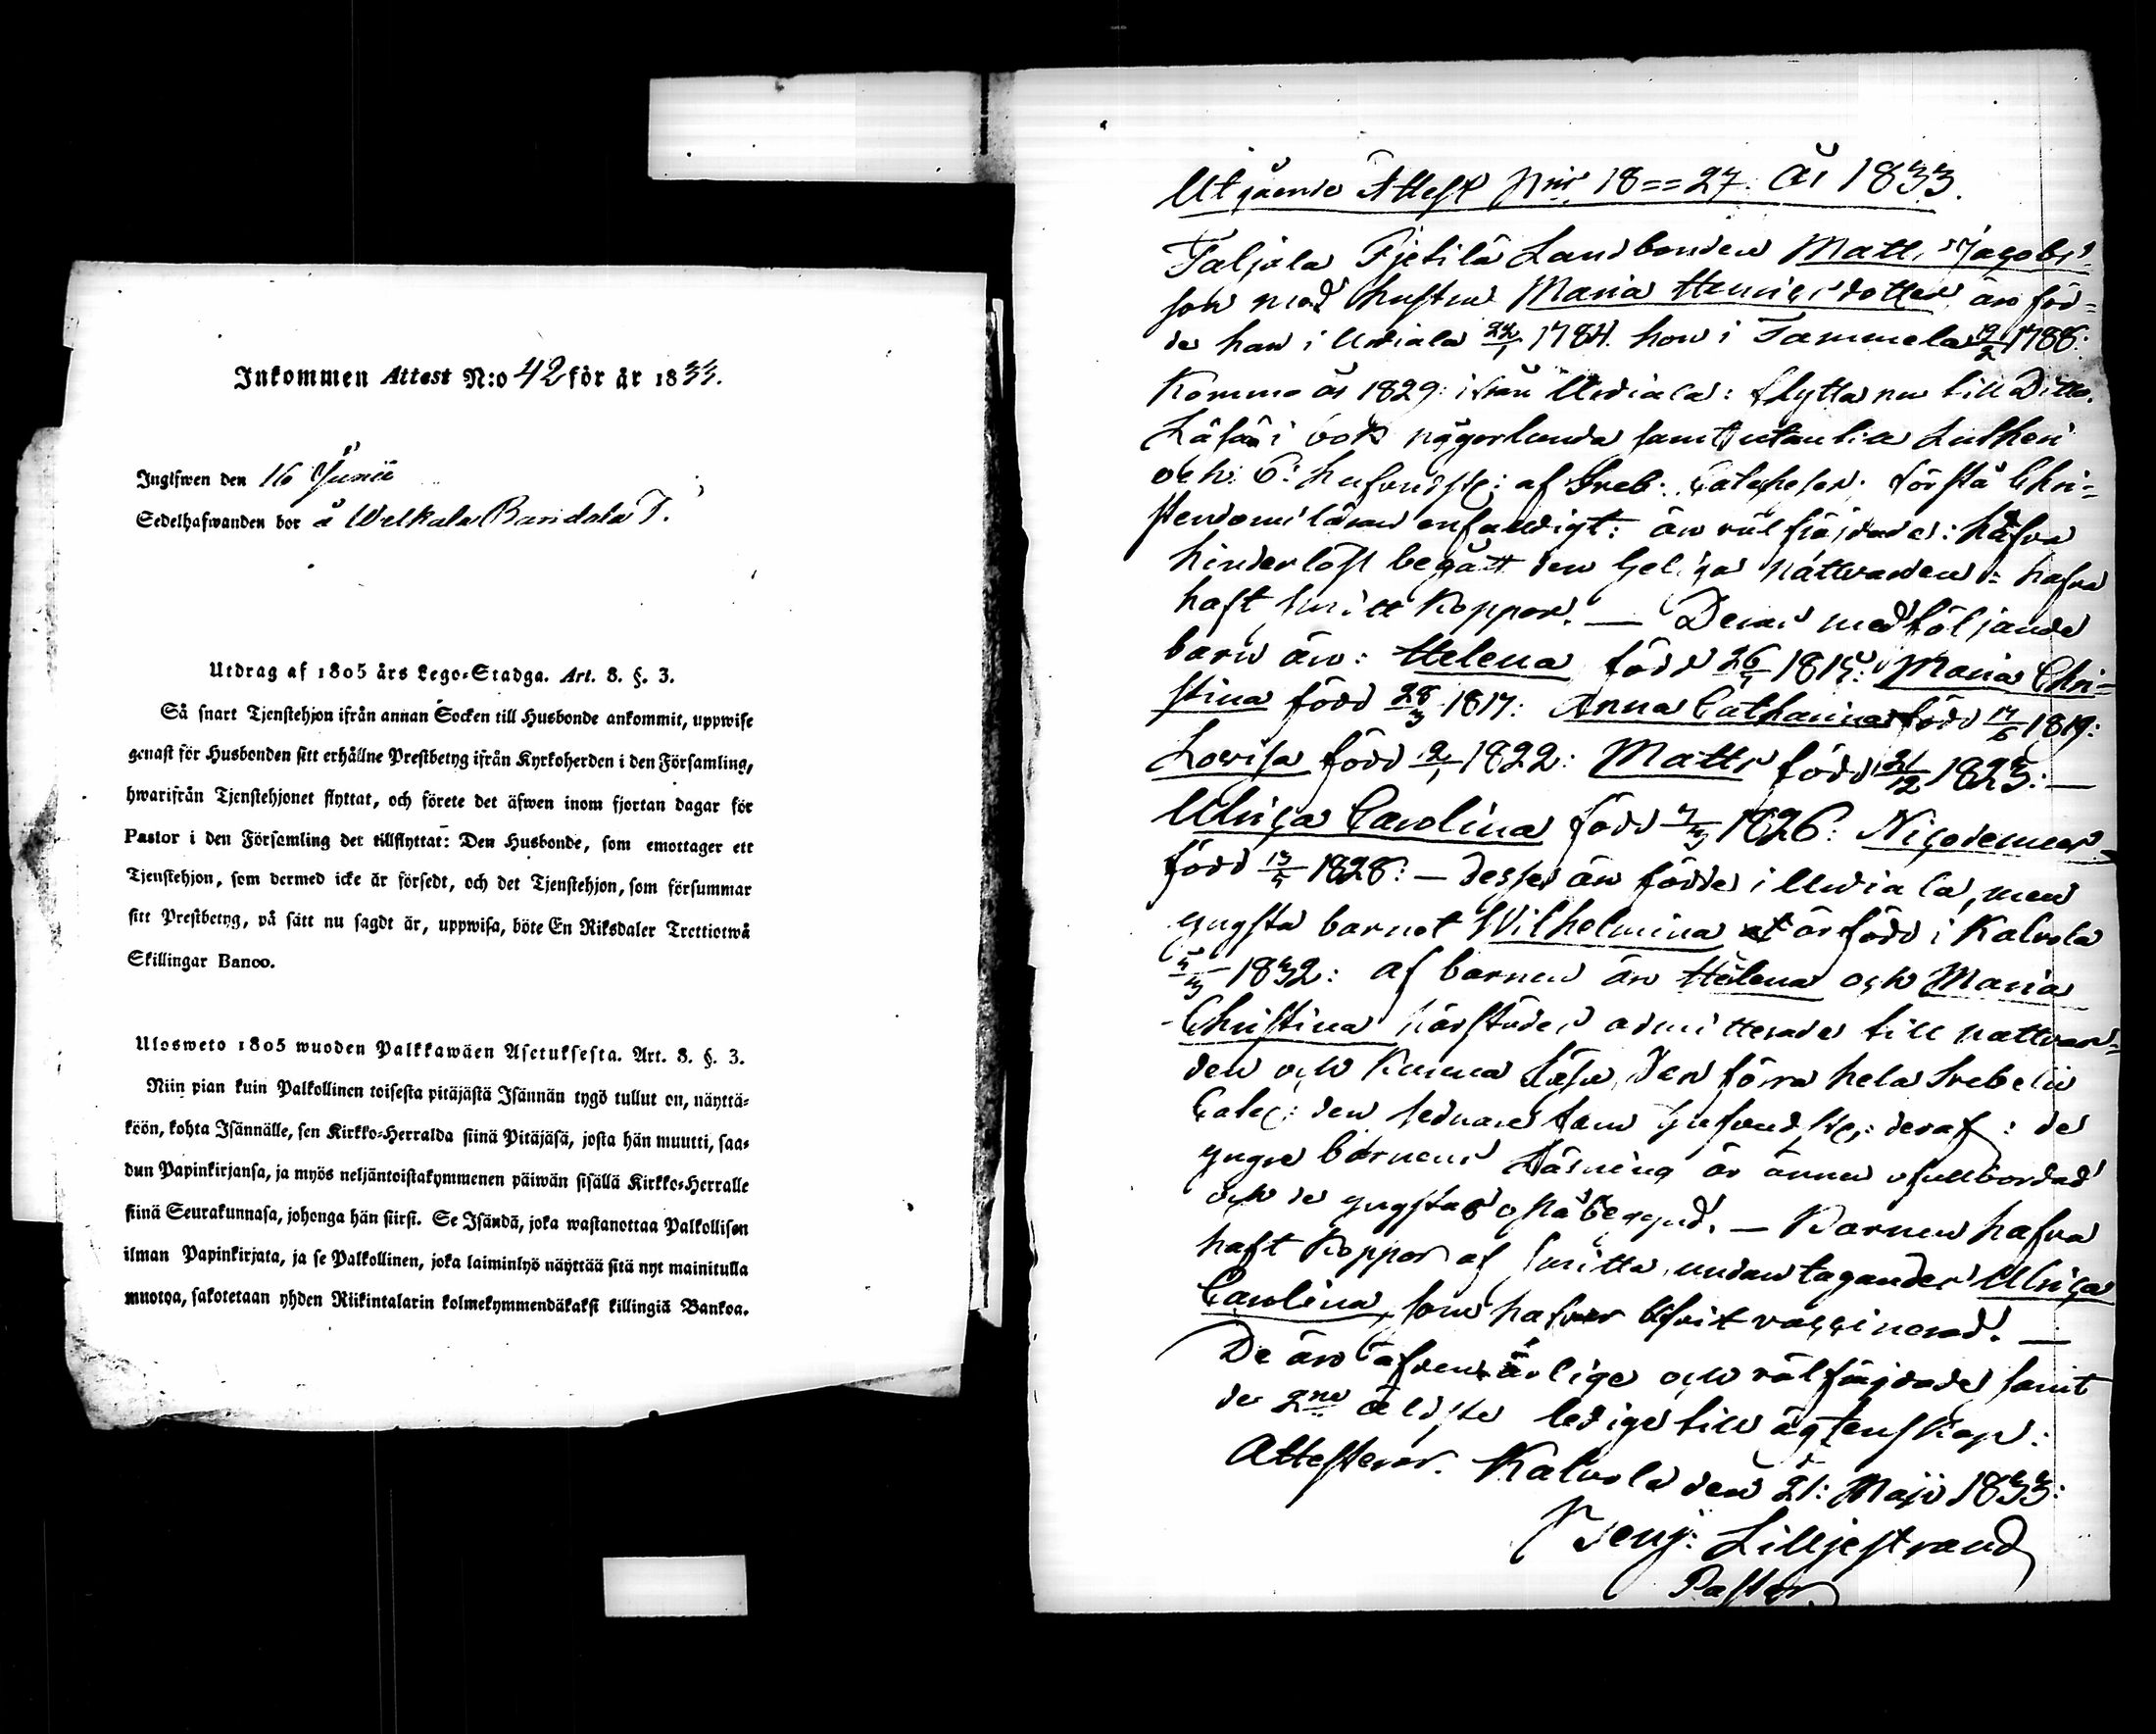 Inkommen Attest N:o 42 för år 1833.
Inglfwen den 16 Junii
Sedelhafwanden bor å Welkala Bandala T.
Utdrag af 1805 års Lego-Stadga. Art. 8. §. 3.
Så snart Tjenstehjon ifrån annan Socken till Husbonde ankommit, uppwise
genast för Husbonden sitt erhållne Prestbetyg ifrån Kyrkoherden i den Församling,
hwarifrån Tjenstehjonet flyttat, och förete det äfwen inom fjortan dagar för
Pastor i den Församling det tillflyttat: Den Husbonde, som emottager ett
Tjenstehjon, som dermed icke är försedt, och det Tjenstehjon, som försummar
sitt Prestbetyg, på sätt nu sagdt är, uppwisa, böte En Riksdaler Trettiotwå
Skillingar Banco.
Ulosweto 1805 wuoden Palkkawäen Asetuksesta. Art. 8. §. 3.
Niin pian kuin Palkollinen toisesta pitäjästä Isännän tygö tullut on, näyttä-
köön, kohta Isännälle, sen Kirkko-Herralda siinä Pitäjäsä, josta hän muutti, saa-
dun Papinkirjansa, ja myös neljäntoistakymmenen päiwän sisällä Kirkko-Herralle
siinä Seurakunnasa, johonga hän siirsi. Se Isändä, joka wastanottaa Palkollisen
ilman Papinkirjata, ja se Palkollinen, joka laiminlyö näyttää sitä nyt mainitulla
muotoa, sakotetaan yhden Riikintalarin kolmekymmendäkaksi killingiä Bankoa.
Utgående Attest N:r 18==27. År 1833.
Taljala Fjetilä Landbonden Matts Jacobs-
son med hustru Maria Henricsdotter äro föd-
de han i Urdiala 22/1 1784. hon i Tammela 19/2 1788:
Kommo år 1829: ifrån Urdiala: flytta nu till Ditto.
Läsa i bok någorlunda samt utanlia Lutheri
och: 6: hufvudst: af Sveb: Catecheser: förstå Chri-
stendomsläran enfaldigt: äro väl fräjdade: hafva
hinderlöst begått den Heliga nattvarden: hafva
haft smitt koppor. — Deras medföljande
barn äro: Helena född 26/1 1815: Maria Chri-
stina född 28/3 1817: Anna Catharina född 17/6 1819:
Lovisa född 2/1 1822: Matts född 21/12 1823: —
Ulrica Carolina född 7/3 1826: Nicodemus
född 13/5 1828: — desse äro födde i Urdiala, men
yngsta barnet Wilhelmina är född i Kalvola
5/3 1832: af barnen äro Helena och Maria
Christina härstädes admitterade till nattvar-
den och kunna läsa, den förra hela Svebelii
Catec: den sednare fem hufvudst: deraf: de
yngre barnens Läsning är ännu ofullbordad
och de yngstas opåbegynd. — Barnen hafva
haft koppor af smitta, undantagandes Ulrica
Carolina, som hafver blifvit vaccinerad. —
De äro äfven ärlige och välfräjdade samt
de 2ne äldste ledige till ägtenskap:
Attesterar. Kalvola den 21: Maji 1833:
Benj: Lilljestrand
Pastor